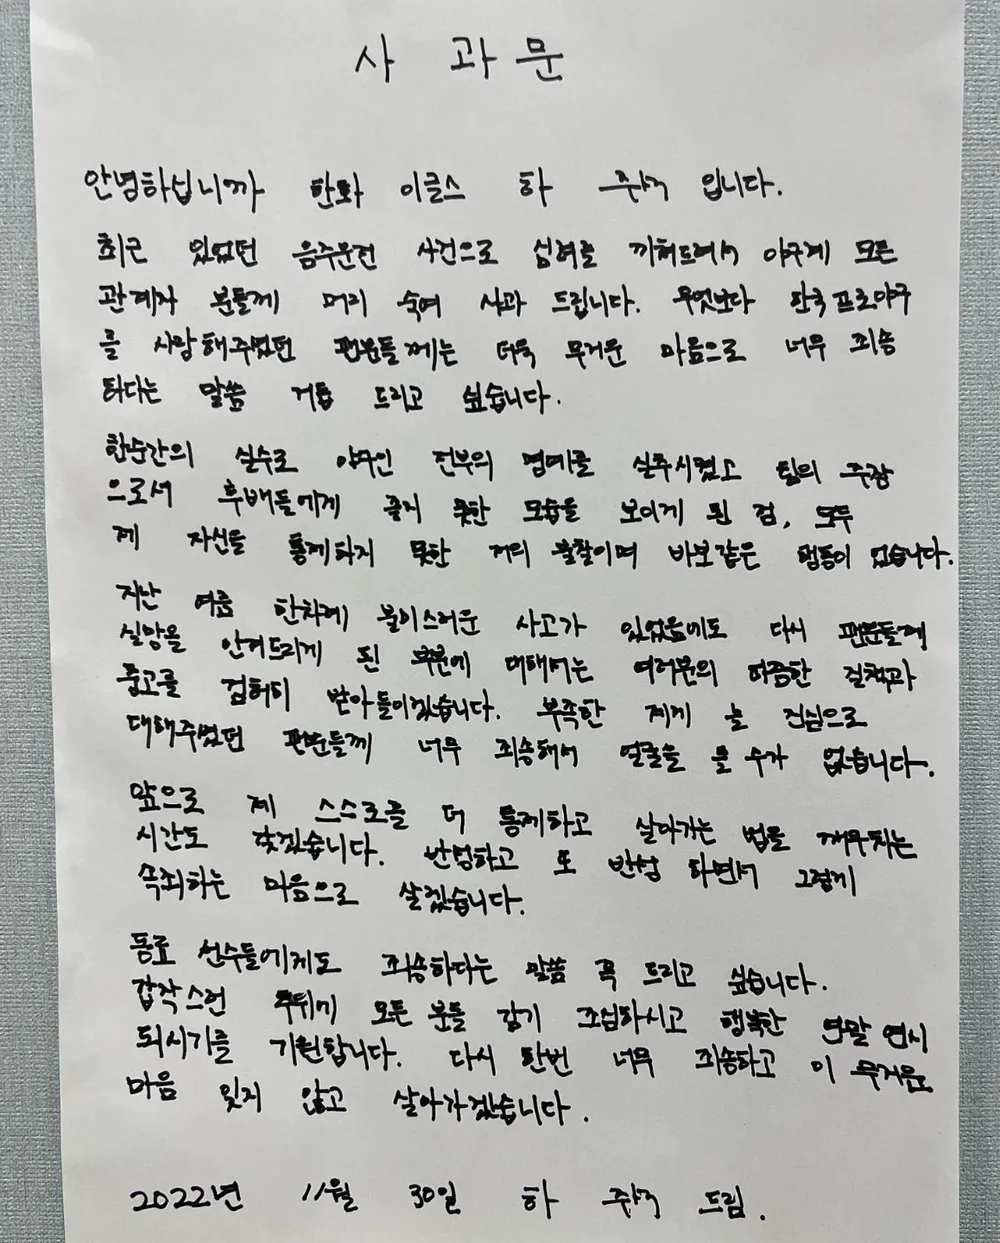 사 과 문
안녕하십니까 한화 이글스 하 주석 입니다.
최근 있었던 음주운전 사건으로 심려를 끼쳐드려서 야구계 모든
관계자 분들께 머리 숙여 사과 드립니다. 무엇보다 한국프로야구
를 사랑해주셨던 팬분들께는 더욱 무거운 마음으로 너무 죄송
하다는 말씀 거듭 드리고 싶습니다.
한순간의 실수로 야구인 전부의 명예를 실추시켰고 팀의 주장
으로서 후배들에게 좋지 못한 모습을 보이게 된 점, 모두
제 자신을 통제하지 못한 저의 불찰이며 바보같은 행동이 었습니다.
지난 여름 한차례 불미스러운 사고가 있었음에도 다시 팬분들께
실망을 안겨드리게 된 부분에 대해서는 여러분의 따끔한 질책과
충고를 겸허히 받아들이겠습니다. 부족한 제게 늘 진심으로
대해주셨던 팬분들께 너무 죄송해서 얼굴을 들 수가 없습니다.
앞으로 제 스스로를 더 통제하고 살아가는 법을 깨우치는
시간도 갖겠습니다. 반성하고 또 반성 하면서 그렇게
속죄하는 마음으로 살겠습니다.
동료 선수들에게도 죄송하다는 말씀 꼭 드리고 싶습니다.
갑작스런 추위에 모든 분들 감기 조심하시고 행복한 연말 연시
되시기를 기원합니다. 다시 한번 너무 죄송하고 이 무거운
마음 잊지 않고 살아가겠습니다.
2022년 11월 30일 하 주석 드림.